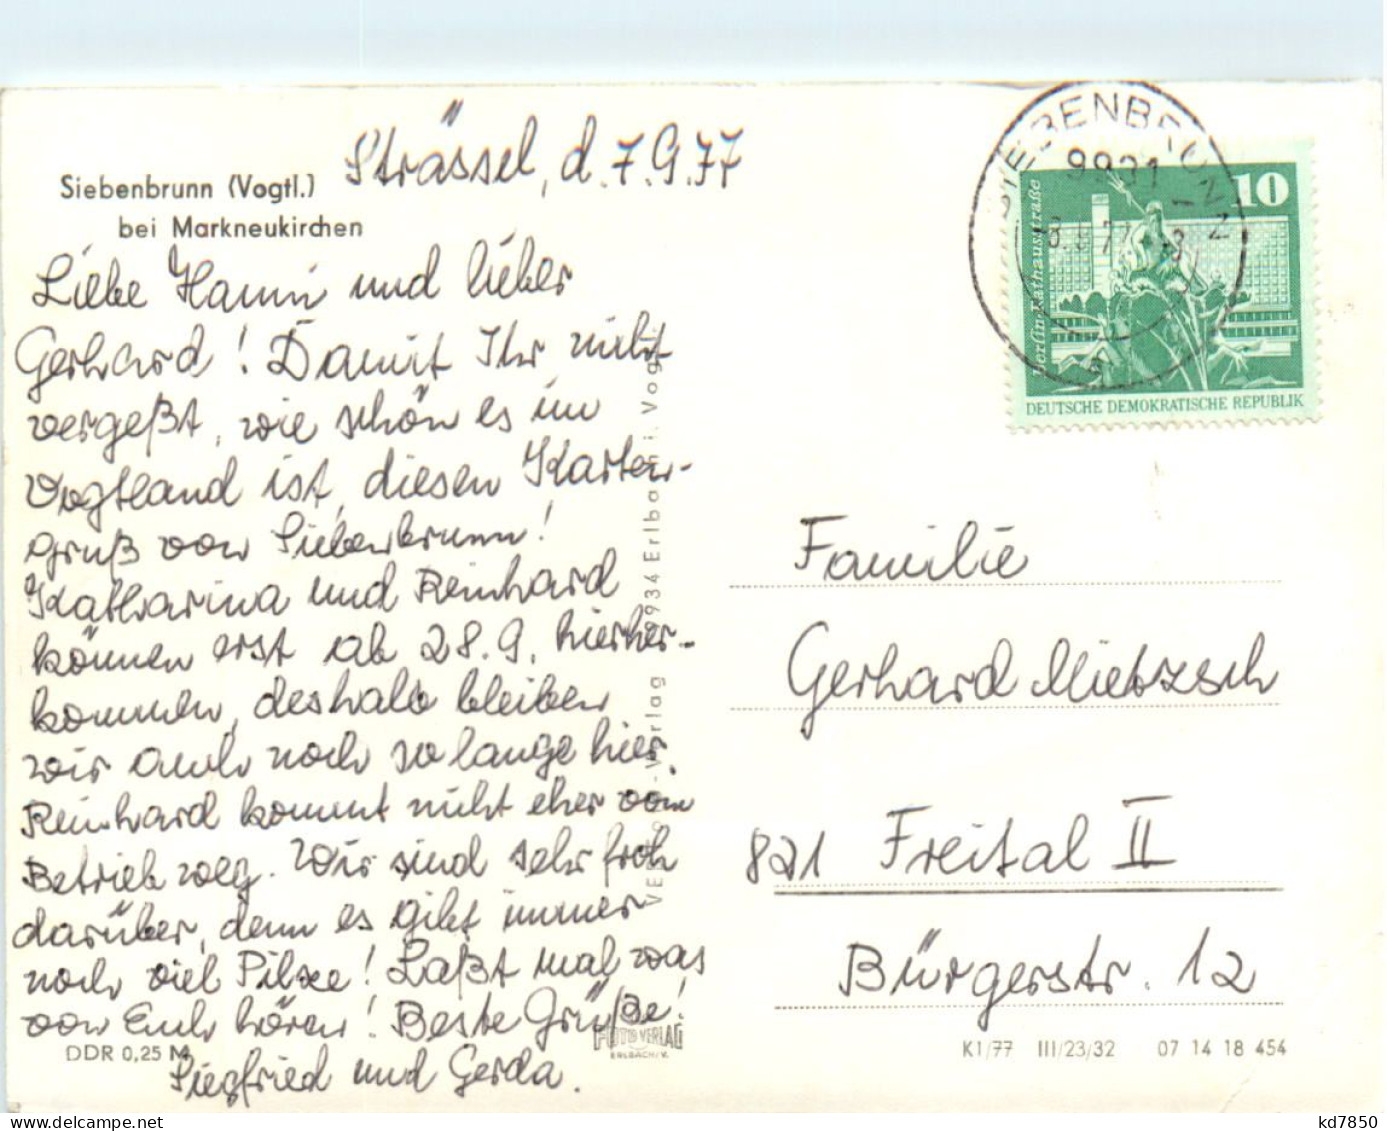 Siebenbrunn (Vogtl.)
bei Markneukirchen
Strässel, d. 7.9.77
Liebe Hanni und lieber
Gerhard! Damit Ihr nicht
vergeßt, wie schön es im
Vogtland ist, diesen Karten-
gruß von Siebenbrunn!
Katharina und Reinhard
können erst ab 28.9. hierher-
kommen, deshalb bleiben
wir auch noch so lange hier.
Reinhard kommt nicht eher vom
Betrieb weg. Wir sind sehr froh
darüber, denn es gibt immer
noch viel Pilze! Laßt mal was
von Euch hören! Beste Grüße!
Siegfried und Gerda.
DDR 0,25 M
FOTO VERLAG
ERLBACH/V.
SIEBENBRUNN
9931
10
Berlin Rathausstraße
DEUTSCHE DEMOKRATISCHE REPUBLIK
Familie
Gerhard Mietzsch
821 Freital II
Bürgerstr. 12
K1/77 III/23/32 07 14 18 454
kd7850